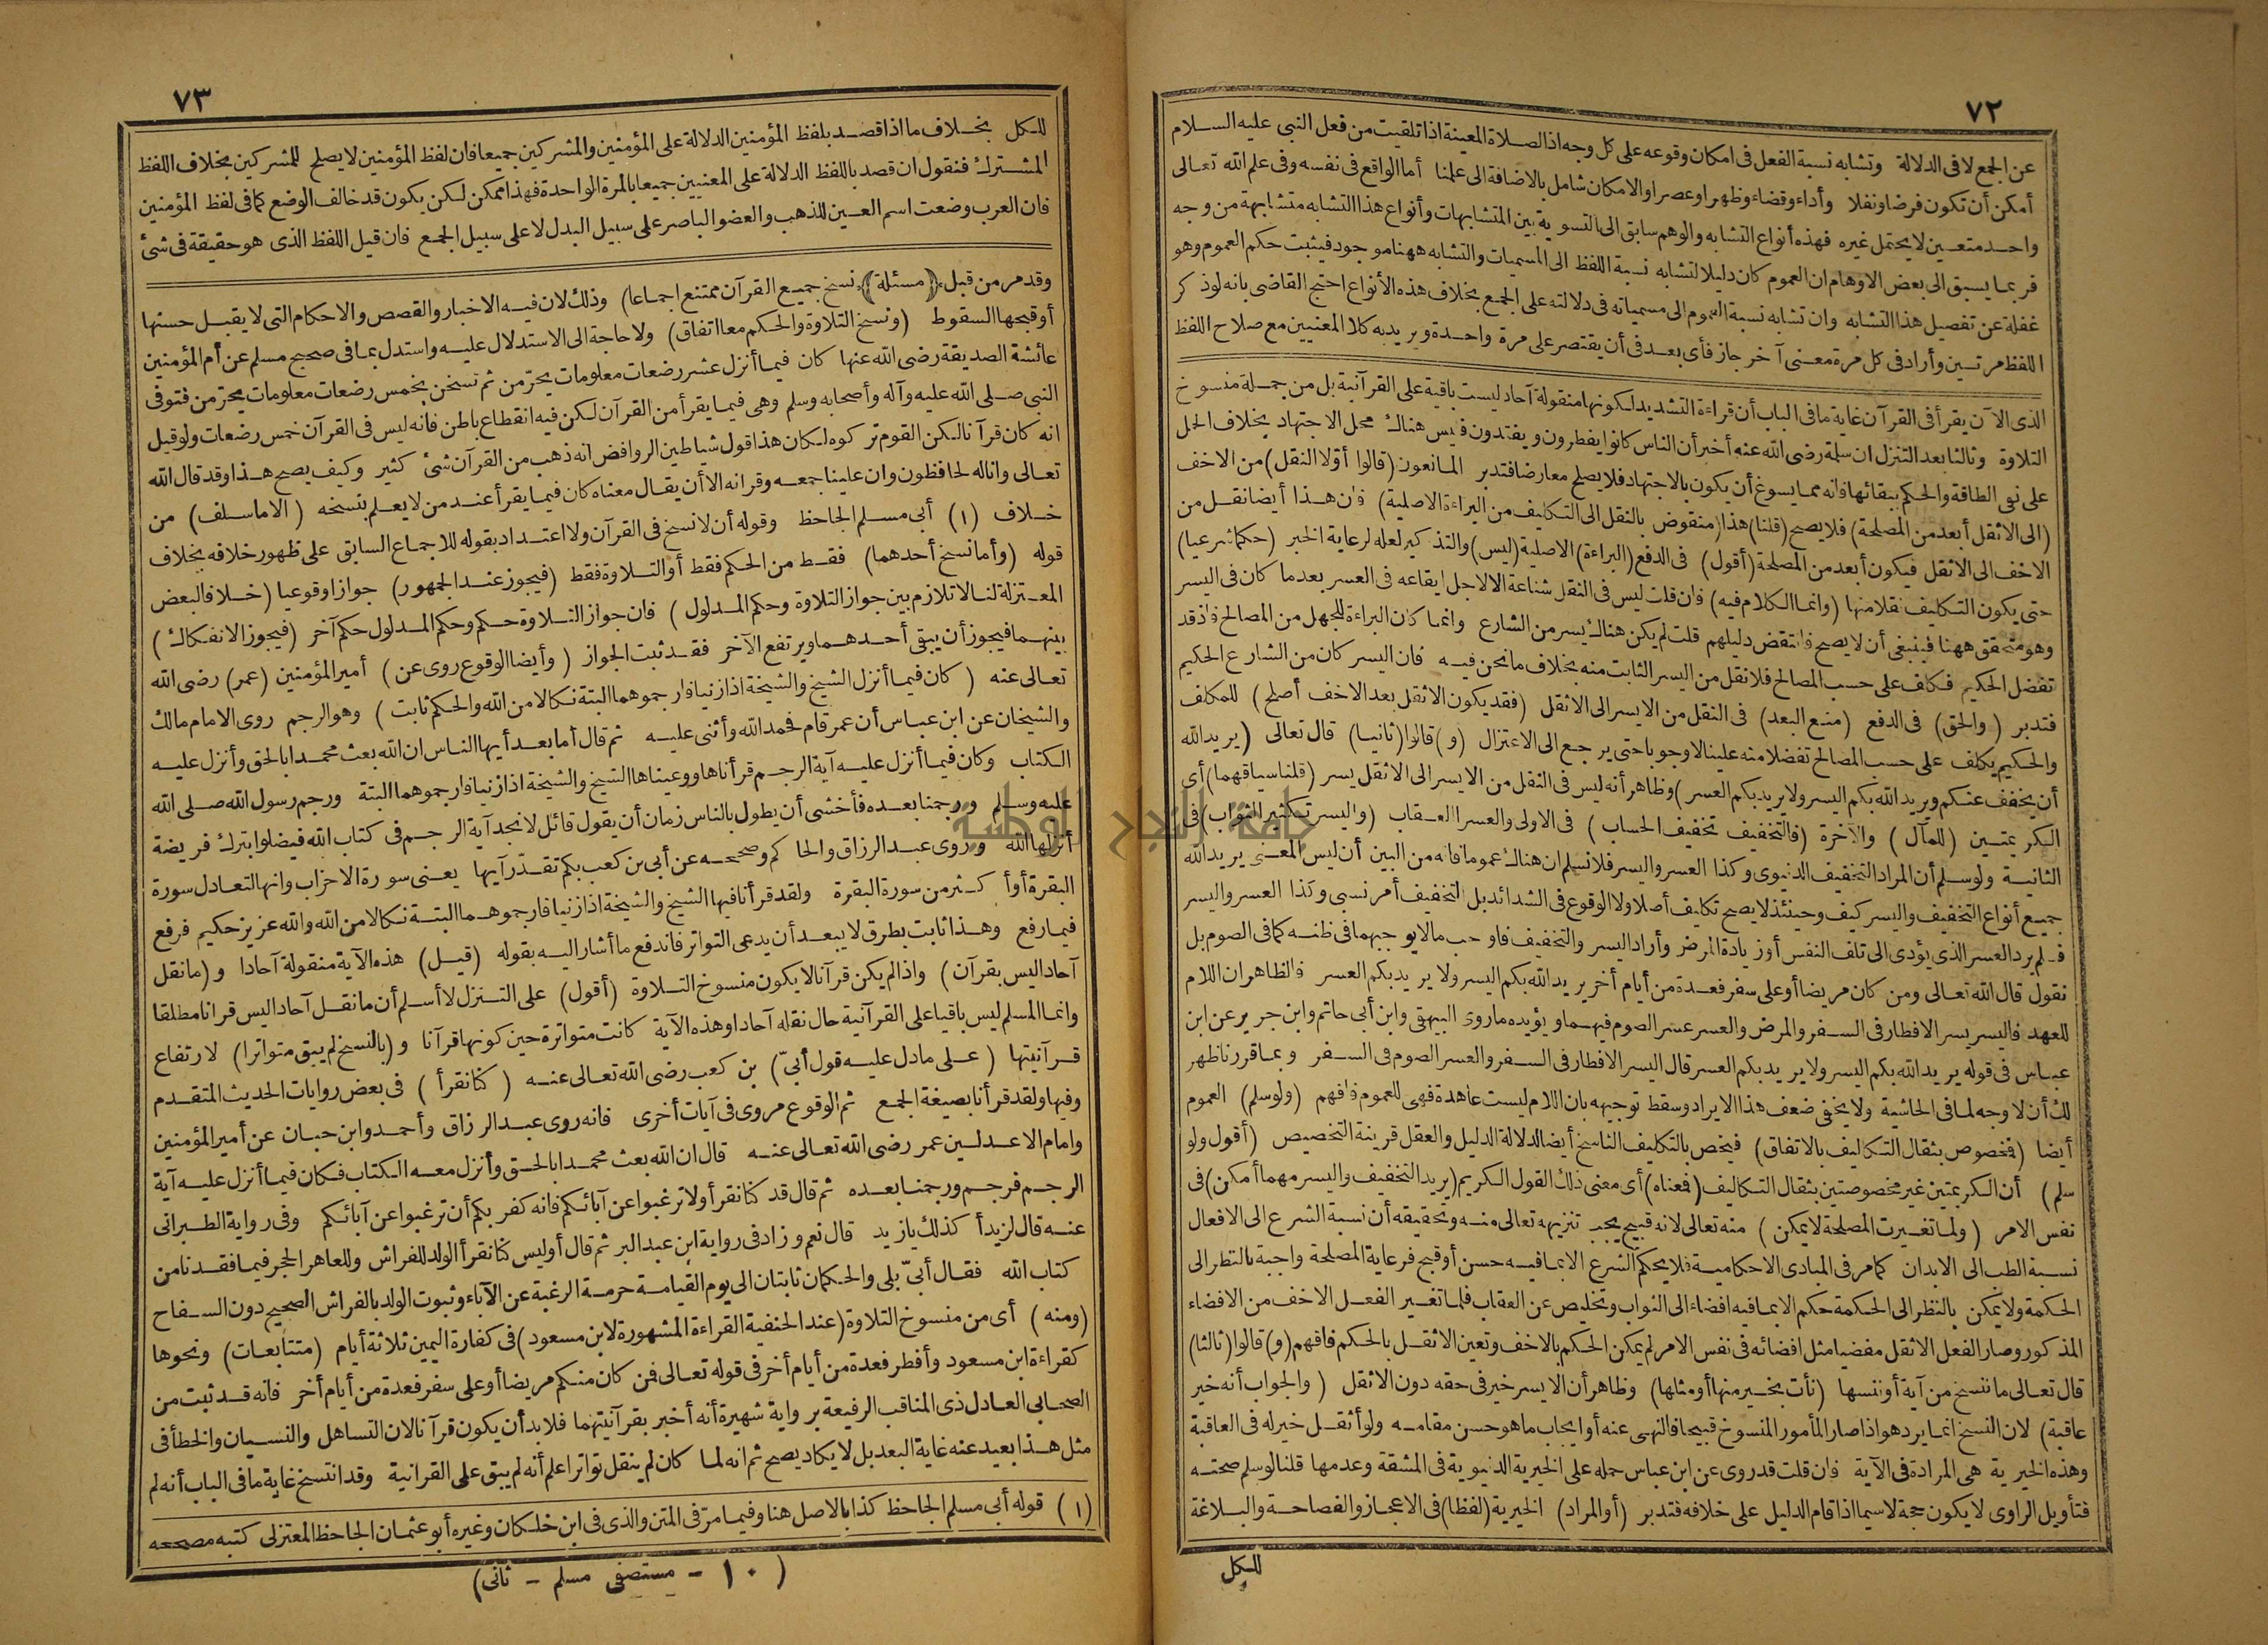 ٧٢
عن الجمع لا فى الدلالة وتشابه نسبة الفعل فى امكان وقوعه على كل وجه اذ الصلاة المعينة اذا تلقيت من فعل النبى عليه السلام
أمكن أن تكون فرضا ونفلا وأداء وقضاء وظهرا وعصرا والامكان شامل بالاضافة الى علمنا أما الواقع فى نفسه وفى علم الله تعالى
واحد متعين لا يحتمل غيره فهذه أنواع التشابه والوهم سابق الى التسوية بين المتشابهات وأنواع هذا التشابه متشابهة من وجه
فربما يسبق الى بعض الاوهام ان العموم كان دليلا لتشابه نسبة اللفظ الى المسميات والتشابه ههنا موجود فيثبت حكم العموم وهو
غفلة عن تفصيل هذا التشابه وان تشابه نسبة العموم الى مسمياته فى دلالته على الجمع بخلاف هذه الأنواع احتج القاضى بانه لو ذكر
اللفظ مرتين وأراد فى كل مرة معنى آخر جاز فأى بعد فى أن يقتصر على مرة واحدة ويريد به كلا المعنيين مع صلاح اللفظ
الذى الآن يقرأ فى القرآن غاية ما فى الباب أن قراءة التشديد لكونها منقولة آحاد ليست باقية على القرآنية بل من جملة منسوخ
التلاوة وثالثا بعد التنزل ان سلمة رضى الله عنه أخبر أن الناس كانوا يفطرون ويفتدون فليس هناك محل الاجتهاد بخلاف الحمل
على نفى الطاقة والحكم ببقائها فانه مما يسوغ أن يكون بالاجتهاد فلا يصلح معارضا فتدبر المانعون (قالوا أولا النقل) من الاخف
(الى الاثقل أبعد من المصلحة) فلا يصح (قلنا) هذا (منقوض بالنقل الى التكليف من البراءة الاصلية) فان هذا أيضا نقل من
الاخف الى الاثقل فيكون أبعد من المصلحة (أقول) فى الدفع (البراءة) الاصلية (ليس) والتذكير لعله لرعاية الخبر (حكما شرعيا)
حتى يكون التكليف نقلا منها (وانما الكلام فيه) فان قلت ليس فى الثقل شناعة الا لاجل ايقاعه فى العسر بعد ما كان فى اليسر
وهو متحقق ههنا فينبغى أن لا يصح فانتقض دليلهم قلت لم يكن هناك يسر من الشارع وانما كان البراءة للجهل من المصالح فاذ قد
تفضل الحكيم فكاف على حسب المصالح فلا نقل من اليسر الثابت منه بخلاف ما نحن فيه فان اليسر كان من الشارع الحكيم
فتدبر (والحق) فى الدفع (منع البعد) فى النقل من الايسر الى الاثقل (فقد يكون الاثقل بعد الاخف أصلح) للمكلف
والحكيم يكلف على حسب المصالح تفضلا منه علينا لا وجوبا حتى يرجع الى الاعتزال (و) قالوا (ثانيا) قال تعالى (يريد الله
أن يخفف عنكم ويريد الله بكم اليسر ولا يريد بكم العسر) وظاهر أنه ليس فى النقل من الايسر الى الاثقل يسر (قلنا سياقهما) أى
الكريمتين (للمآل) والآخرة (فالتخفيف تخفيف الحساب) فى الاولى والعسر العقاب (واليسر تكثير الثواب) فى
الثانية ولو سلم أن المراد التخفيف الدنيوى وكذا العسر واليسر فلا نسلم ان هناك عموما فانه من البين أن ليس المعنى يريد الله
جميع أنواع التخفيف واليسر كيف وحينئذ لا يصح تكليف أصلا ولا الوقوع فى الشدائد بل التخفيف أمر نسبى وكذا العسر واليسر
فلم يرد العسر الذى يؤدى الى تلف النفس أو زيادة المرض وأراد اليسر والتخفيف فاوجب ما لا يوجبهما فى ظنه كما فى الصوم بل
نقول قال الله تعالى ومن كان مريضا أو على سفر فعدة من أيام أخر يريد الله بكم اليسر ولا يريد بكم العسر فالظاهر ان اللام
للعهد فاليسر يسر الافطار فى السفر والمرض والعسر عسر الصوم فيهما ويؤيده ما روى البيهقى وابن أبى حاتم وابن جرير عن ابن
عباس فى قوله يريد الله بكم اليسر ولا يريد بكم العسر قال اليسر الافطار فى السفر والعسر الصوم فى السفر وبما قررنا ظهر
لك أن لا وجه لما فى الحاشية ولا يخفى ضعف هذا الايراد وسقط توجيهه بان اللام ليست عاهدة فهى للعموم فافهم (ولو سلم) العموم
أيضا (فمخصوص بثقال التكاليف بالاتفاق) فيخص بالتكليف الناسخ أيضا لدلالة الدليل والعقل قرينة التخصيص (أقول ولو
سلم) أن الكريمتين غير مخصوصتين بثقال التكاليف (فمعناه) أى معنى ذلك القول الكريم (يريد التخفيف واليسر مهما أمكن) فى
نفس الامر (ولما تغيرت المصلحة لا يمكن) منه تعالى لانه قبيح يجب تنزيهه تعالى منه وتحقيقه أن نسبة الشرع الى الافعال
نسبة الطب الى الابدان كما مر فى المبادى الاحكامية فلا يحكم الشرع الا بما فيه حسن أو قبح فرعاية المصلحة واجبة بالنظر الى
الحكمة ولا يمكن بالنظر الى الحكمة حكم الا بما فيه افضاء الى الثواب وتخليص عن العقاب فلما تغير الفعل الاخف من الافضاء
المذكور وصار الفعل الاثقل مفضيا مثل افضائه فى نفس الامر لم يمكن الحكم بالاخف وتعين الاثقل بالحكم فافهم (و) قالوا (ثالثا)
قال تعالى ما ننسخ من آية أو ننسها (نأت بخير منها أو مثلها) وظاهر أن الايسر خير فى حقه دون الاثقل (والجواب أنه خير
عاقبة) لان النسخ انما يرد هو اذا صار المأمور المنسوخ قبيحا فالنهى عنه أو ايجاب ما هو حسن مقامه ولو أثقل خير له فى العاقبة
وهذه الخيرية هى المرادة فى الآية فان قلت قد روى عن ابن عباس حمله على الخيرية الدنيوية فى المشقة وعدمها قلنا لو سلم صحته
فتأويل الراوى لا يكون حجة لا سيما اذا قام الدليل على خلافه فتدبر (أو المراد) الخيرية (لفظا) فى الاعجاز والفصاحة والبلاغة
للكل
٧٣
للكل بخلاف ما اذا قصد بلفظ المؤمنين الدلالة على المؤمنين والمشركين جميعا فان لفظ المؤمنين لا يصلح للمشركين بخلاف اللفظ
المشترك فنقول ان قصد باللفظ الدلالة على المعنيين جميعا بالمرة الواحدة فهذا ممكن لكن يكون قد خالف الوضع كما فى لفظ المؤمنين
فان العرب وضعت اسم العين للذهب والعضو الباصر على سبيل البدل لا على سبيل الجمع فان قيل اللفظ الذى هو حقيقة فى شئ
وقد مر من قبل ﴿مسئلة﴾ نسخ جميع القرآن ممتنع اجماعا) وذلك لان فيه الاخبار والقصص والاحكام التى لا يقبل حسنها
أو قبحها السقوط (ونسخ التلاوة والحكم معا اتفاق) ولا حاجة الى الاستدلال عليه واستدل بما فى صحيح مسلم عن أم المؤمنين
عائشة الصديقة رضى الله عنها كان فيما أنزل عشر رضعات معلومات يحرمن ثم نسخن بخمس رضعات معلومات يحرمن فتوفى
النبى صلى الله عليه وآله وأصحابه وسلم وهى فيما يقرأ من القرآن لكن فيه انقطاع باطن فانه ليس فى القرآن خمس رضعات ولو قيل
انه كان قرآنا لكن القوم تركوه لكان هذا قول شياطين الروافض انه ذهب من القرآن شئ كثير وكيف يصح هذا وقد قال الله
تعالى وانا له لحافظون وان علينا جمعه وقرانه الا أن يقال معناه كان فيما يقرأ عند من لا يعلم بنسخه (الا ما سلف) من
خلاف (١) أبى مسلم الجاحظ وقوله أن لا نسخ فى القرآن ولا اعتداد بقوله للاجماع السابق على ظهور خلافه بخلاف
قوله (وأما نسخ أحدهما) فقط من الحكم فقط أو التلاوة فقط (فيجوز عند الجمهور) جوازا وقوعيا (خلافا لبعض
المعتزلة لنا لا تلازم بين جواز التلاوة وحكم المدلول) فان جواز التلاوة حكم وحكم المدلول حكم آخر (فيجوز الانفكاك)
بينهما فيجوز أن يبقى أحدهما ويرتفع الآخر فقد ثبت الجواز (وأيضا الوقوع روى عن) أمير المؤمنين (عمر) رضى الله
تعالى عنه (كان فيما أنزل الشيخ والشيخة اذا زنيا فارجموهما البتة نكالا من الله والحكم ثابت) وهو الرجم روى الامام مالك
والشيخان عن ابن عباس أن عمر قام فحمد الله وأثنى عليه ثم قال أما بعد أيها الناس ان الله بعث محمدا بالحق وأنزل عليه
الكتاب وكان فيما أنزل عليه آية الرجم قرأناها ووعيناها الشيخ والشيخة اذا زنيا فارجموهما البتة ورجم رسول الله صلى الله
عليه وسلم ورجمنا بعده فأخشى أن يطول بالناس زمان أن يقول قائل لا نجد آية الرجم فى كتاب الله فيضلوا بترك فريضة
أنزلها الله وروى عبد الرزاق والحاكم وصححه عن أبى بن كعب بكم تقدر آيها يعنى سورة الاحزاب وانها لتعادل سورة
البقرة أو أكثر من سورة البقرة ولقد قرأنا فيها الشيخ والشيخة اذا زنيا فارجموهما البتة نكالا من الله والله عزيز حكيم فرفع
فيما رفع وهذا ثابت بطرق لا يبعد أن يدعى التواتر فاندفع ما أشار اليه بقوله (قيل) هذه الآية منقولة آحادا و(ما نقل
آحادا ليس بقرآن) واذا لم يكن قرآنا لا يكون منسوخ التلاوة (أقول) على التنزل لا أسلم أن ما نقل آحادا ليس قرانا مطلقا
وانما المسلم ليس باقيا على القرآنية حال نقله آحادا وهذه الآية كانت متواترة حين كونها قرآنا و(بالنسخ لم يبق متواترا) لارتفاع
قرآنيتها (على ما دل عليه قول أبىّ) بن كعب رضى الله تعالى عنه (كنا نقرأ) فى بعض روايات الحديث المتقدم
وفيها ولقد قرأنا بصيغة الجمع ثم الوقوع مروى فى آيات أخرى فانه روى عبد الرزاق وأحمد وابن حبان عن أمير المؤمنين
وامام الاعدلين عمر رضى الله تعالى عنه قال ان الله بعث محمدا بالحق وأنزل معه الكتاب فكان فيما أنزل عليه آية
الرجم فرجم ورجمنا بعده ثم قال قد كنا نقرأ ولا ترغبوا عن آبائكم فانه كفر بكم أن ترغبوا عن آبائكم وفى رواية الطبرانى
عنه قال لزيد أكذلك يا زيد قال نعم وزاد فى رواية ابن عبد البر ثم قال أو ليس كنا نقرأ الولد للفراش وللعاهر الحجر فيما فقدنا من
كتاب الله فقال أبىّ بلى والحكمان ثابتان الى يوم القيامة حرمة الرغبة عن الآباء وثبوت الولد بالفراش الصحيح دون السفاح
(ومنه) أى من منسوخ التلاوة (عند الحنفية القراءة المشهورة لابن مسعود) فى كفارة اليمين ثلاثة أيام (متتابعات) ونحوها
كقراءة ابن مسعود وأفطر فعدة من أيام أخر فى قوله تعالى فمن كان منكم مريضا أو على سفر فعدة من أيام أخر فانه قد ثبت من
الصحابى العادل ذى المناقب الرفيعة برواية شهيرة أنه أخبر بقرآنيتهما فلا بد أن يكون قرآنا لان التساهل والنسيان والخطأ فى
مثل هذا بعيد عنه غاية البعد بل لا يكاد يصح ثم انه لما كان لم ينقل تواترا علم أنه لم يبق على القرانية وقد انتسخ غاية ما فى الباب أنه لم
(١) قوله أبى مسلم الجاحظ كذا بالاصل هنا وفيما مرّ فى المتن والذى فى ابن خلكان وغيره أبو عثمان الجاحظ المعتزلى كتبه مصححه
(١٠ - مستصفى مسلم - ثانى)
جامعة النجاح الوطنية